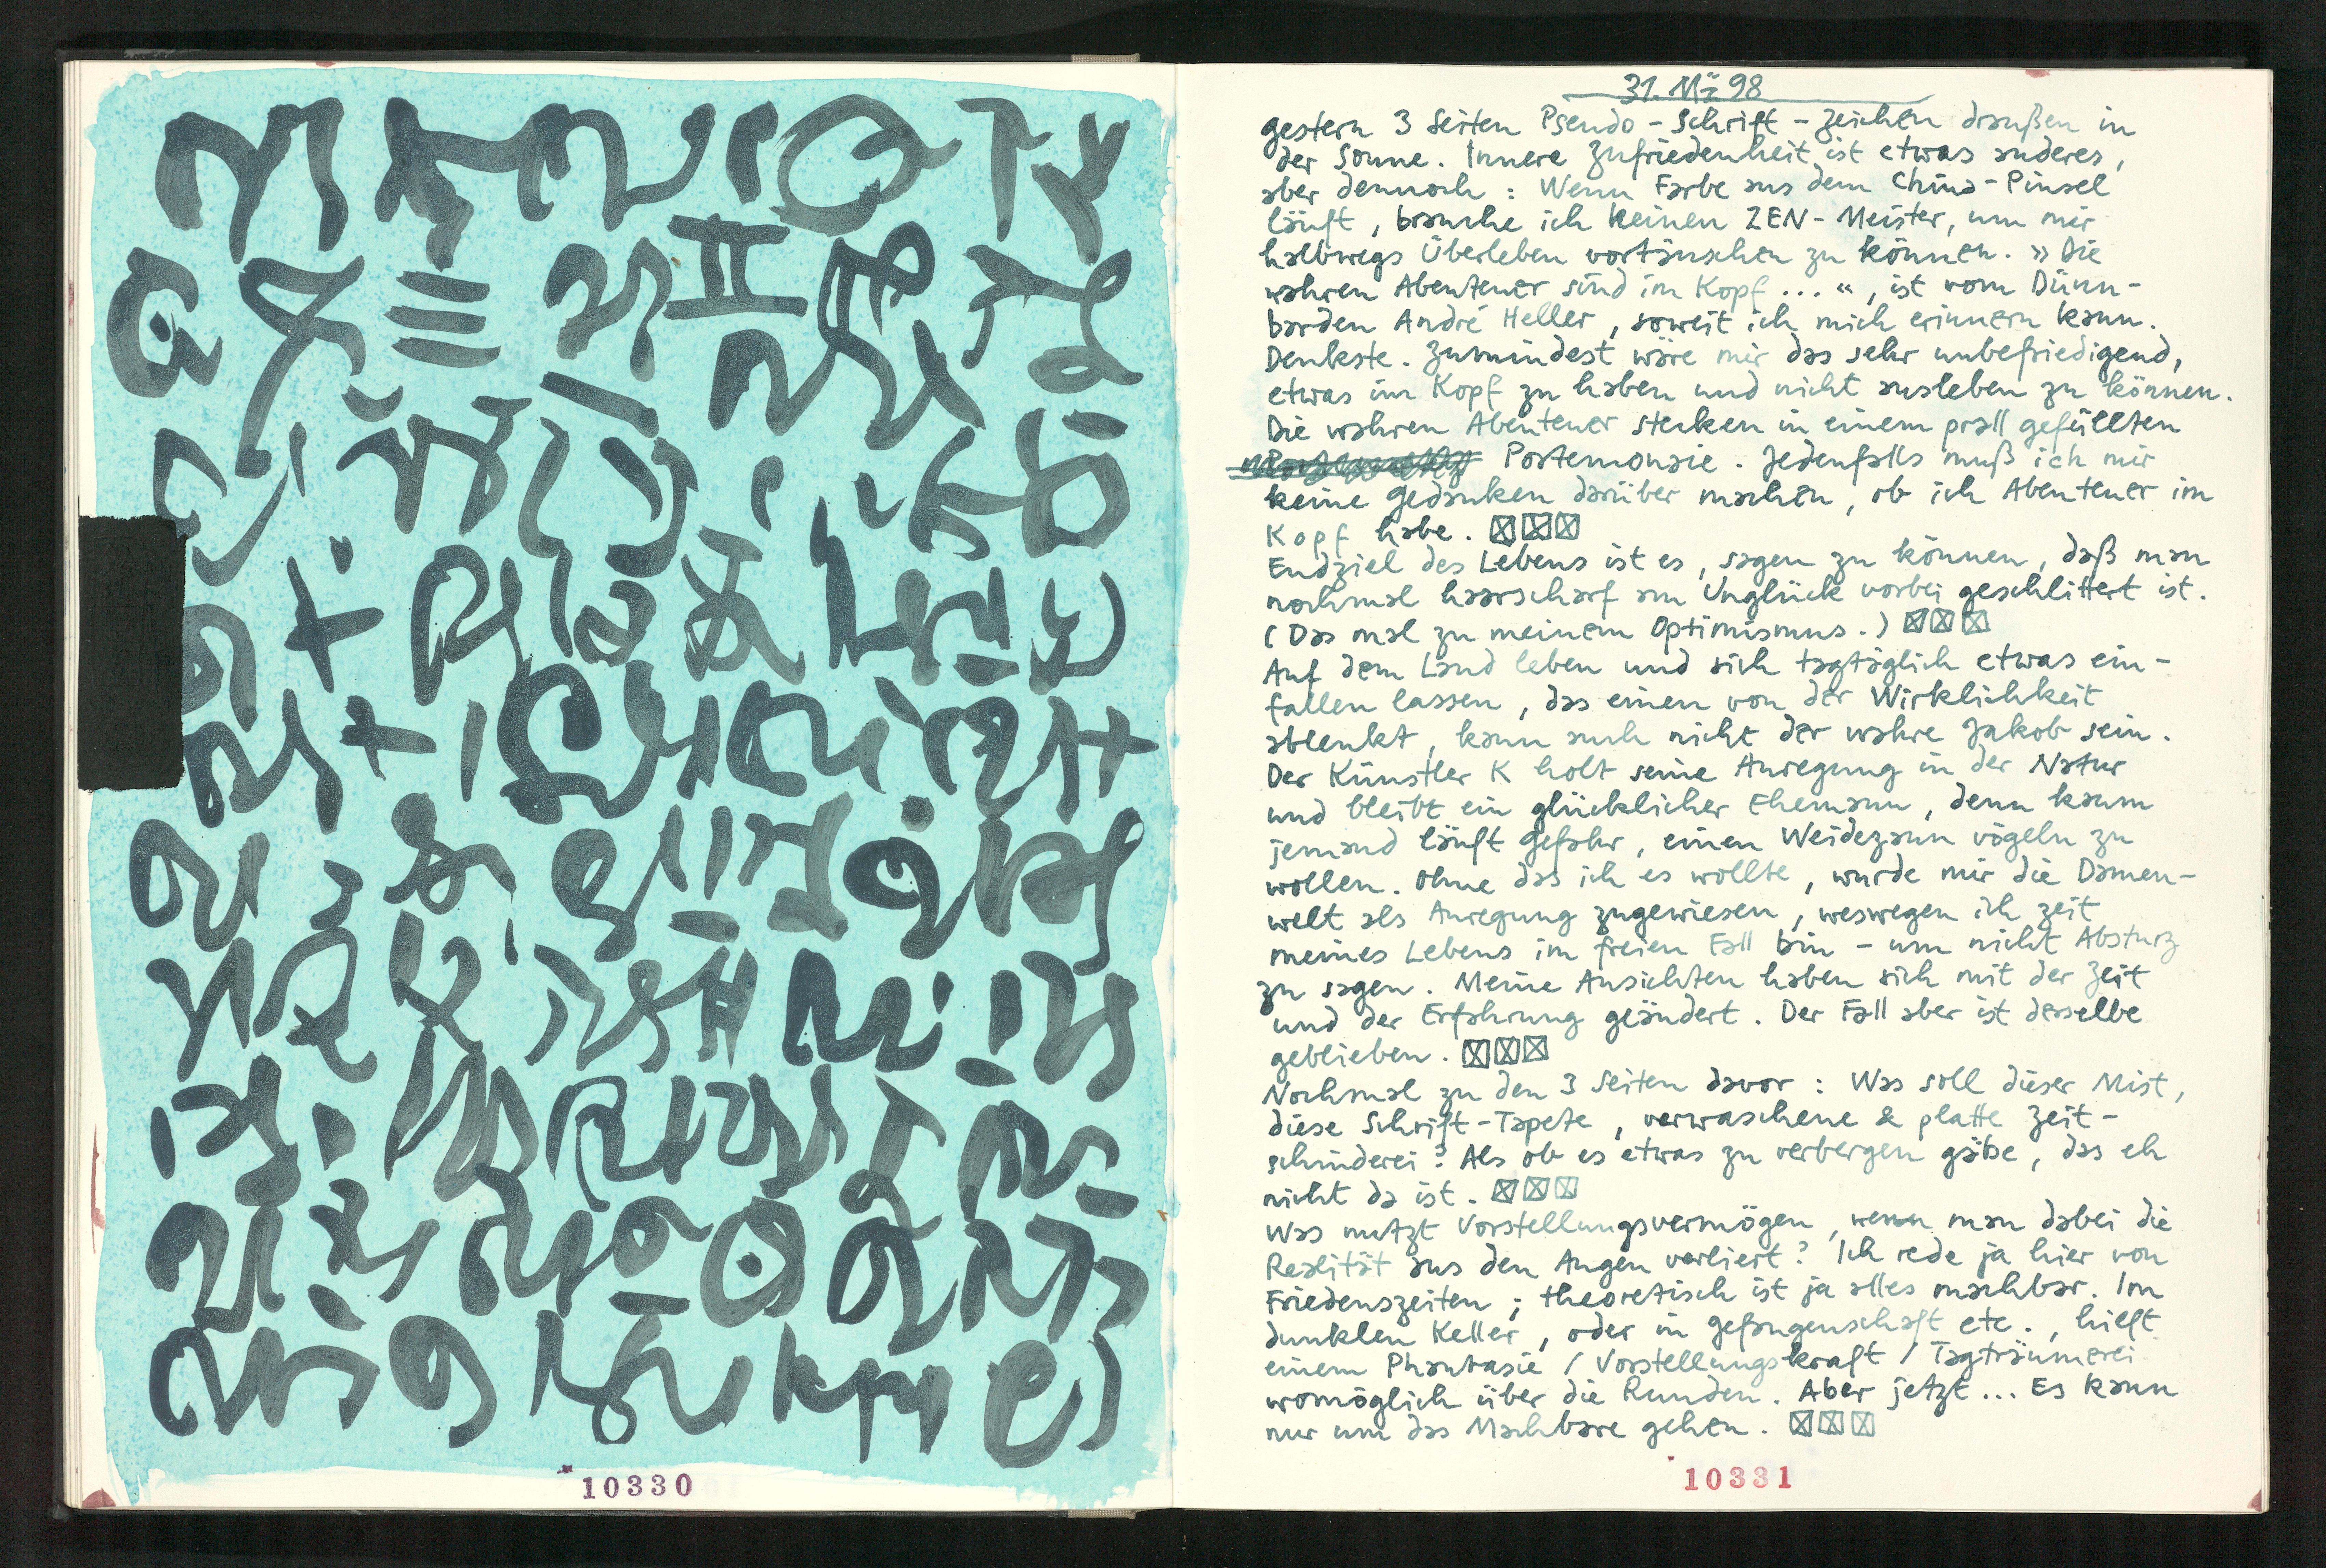 10330
31. Mä 98
gestern 3 Seiten Pseudo-Schrift-Zeichen draußen in
der Sonne. Innere Zufriedenheit ist etwas anderes,
aber dennoch: Wenn Farbe aus dem China-Pinsel
läuft, brauche ich keinen ZEN-Meister, um mir
halbwegs Überleben vortäuschen zu können. »Die
wahren Abenteuer sind im Kopf...«, ist vom Dünn-
barden André Heller, soweit ich mich erinnern kann.
Denkste. Zumindest wäre mir das sehr unbefriedigend,
etwas im Kopf zu haben und nicht ausleben zu können.
Die wahren Abenteuer stecken in einem prall gefüllten
Portemonaie. Jedenfalls muß ich mir
keine Gedanken darüber machen, ob ich Abenteuer im
Kopf habe. ☒☒☒
Endziel des Lebens ist es, sagen zu können, daß man
nochmal haarscharf am Unglück vorbei geschlittert ist.
(Das mal zu meinem Optimismus.) ☒☒☒
Auf dem Land leben und sich tagtäglich etwas ein-
fallen lassen, das einen von der Wirklichkeit
ablenkt, kann auch nicht der wahre Jakob sein.
Der Künstler K holt seine Anregung in der Natur
und bleibt ein glücklicher Ehemann, denn kaum
jemand läuft Gefahr, einen Weidezaun vögeln zu
wollen. Ohne das ich es wollte, wurde mir die Damen-
welt als Anregung zugewiesen, weswegen ich zeit
meines Lebens im freien Fall bin - um nicht Absturz
zu sagen. Meine Ansichten haben sich mit der Zeit
und der Erfahrung geändert. Der Fall aber ist dasselbe
geblieben. ☒☒☒
Nochmal zu den 3 Seiten davor: Was soll dieser Mist,
diese Schrift-Tapete, verwaschene & platte Zeit-
schinderei? Als ob es etwas zu verbergen gäbe, das eh
nicht da ist. ☒☒☒
Was nutzt Vorstellungsvermögen, wenn man dabei die
Realität aus den Augen verliert? Ich rede ja hier von
Friedenszeiten; theoretisch ist ja alles machbar. Im
dunklen Keller, oder in Gefangenschaft etc., hilft
einem Phantasie / Vorstellungskraft / Tagträumerei
womöglich über die Runden. Aber jetzt... Es kann
nur um das Machbare gehen. ☒☒☒
10331